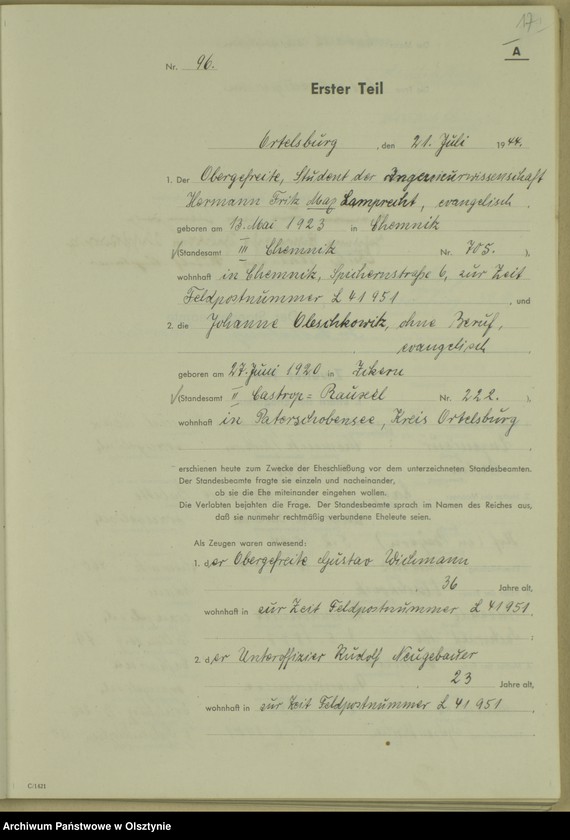 17
A
Nr. 96.
Erster Teil
Ortelsburg, den 21. Juli 1944.
1. Der Obergefreite, Student der Ingenieurwissenschaft
Hermann Fritz Max Lamprecht, evangelisch.
geboren am 13. Mai 1923 in Chemnitz
(Standesamt III Chemnitz Nr. 705. ),
wohnhaft in Chemnitz, Spichernstraße 6, zur Zeit
Feldpostnummer L 41951, und
2. die Johanne Oleschkowitz, ohne Beruf,
evangelisch
geboren am 27. Juni 1920 in Ickern
(Standesamt II Castrop=Rauxel Nr. 222. ),
wohnhaft in Paterschobensee, Kreis Ortelsburg
erschienen heute zum Zwecke der Eheschließung vor dem unterzeichneten Standesbeamten.
Der Standesbeamte fragte sie einzeln und nacheinander,
ob sie die Ehe miteinander eingehen wollen.
Die Verlobten bejahten die Frage. Der Standesbeamte sprach im Namen des Reiches aus,
daß sie nunmehr rechtmäßig verbundene Eheleute seien.
Als Zeugen waren anwesend:
1. der Obergefreite Gustav Wichmann
36 Jahre alt,
wohnhaft in zur Zeit Feldpostnummer L 41951.
;
2. der Unteroffizier Rudolf Neugebauer
23 Jahre alt,
wohnhaft in zur Zeit Feldpostnummer L 41951
.
C/1421
Archiwum Państwowe w Olsztynie